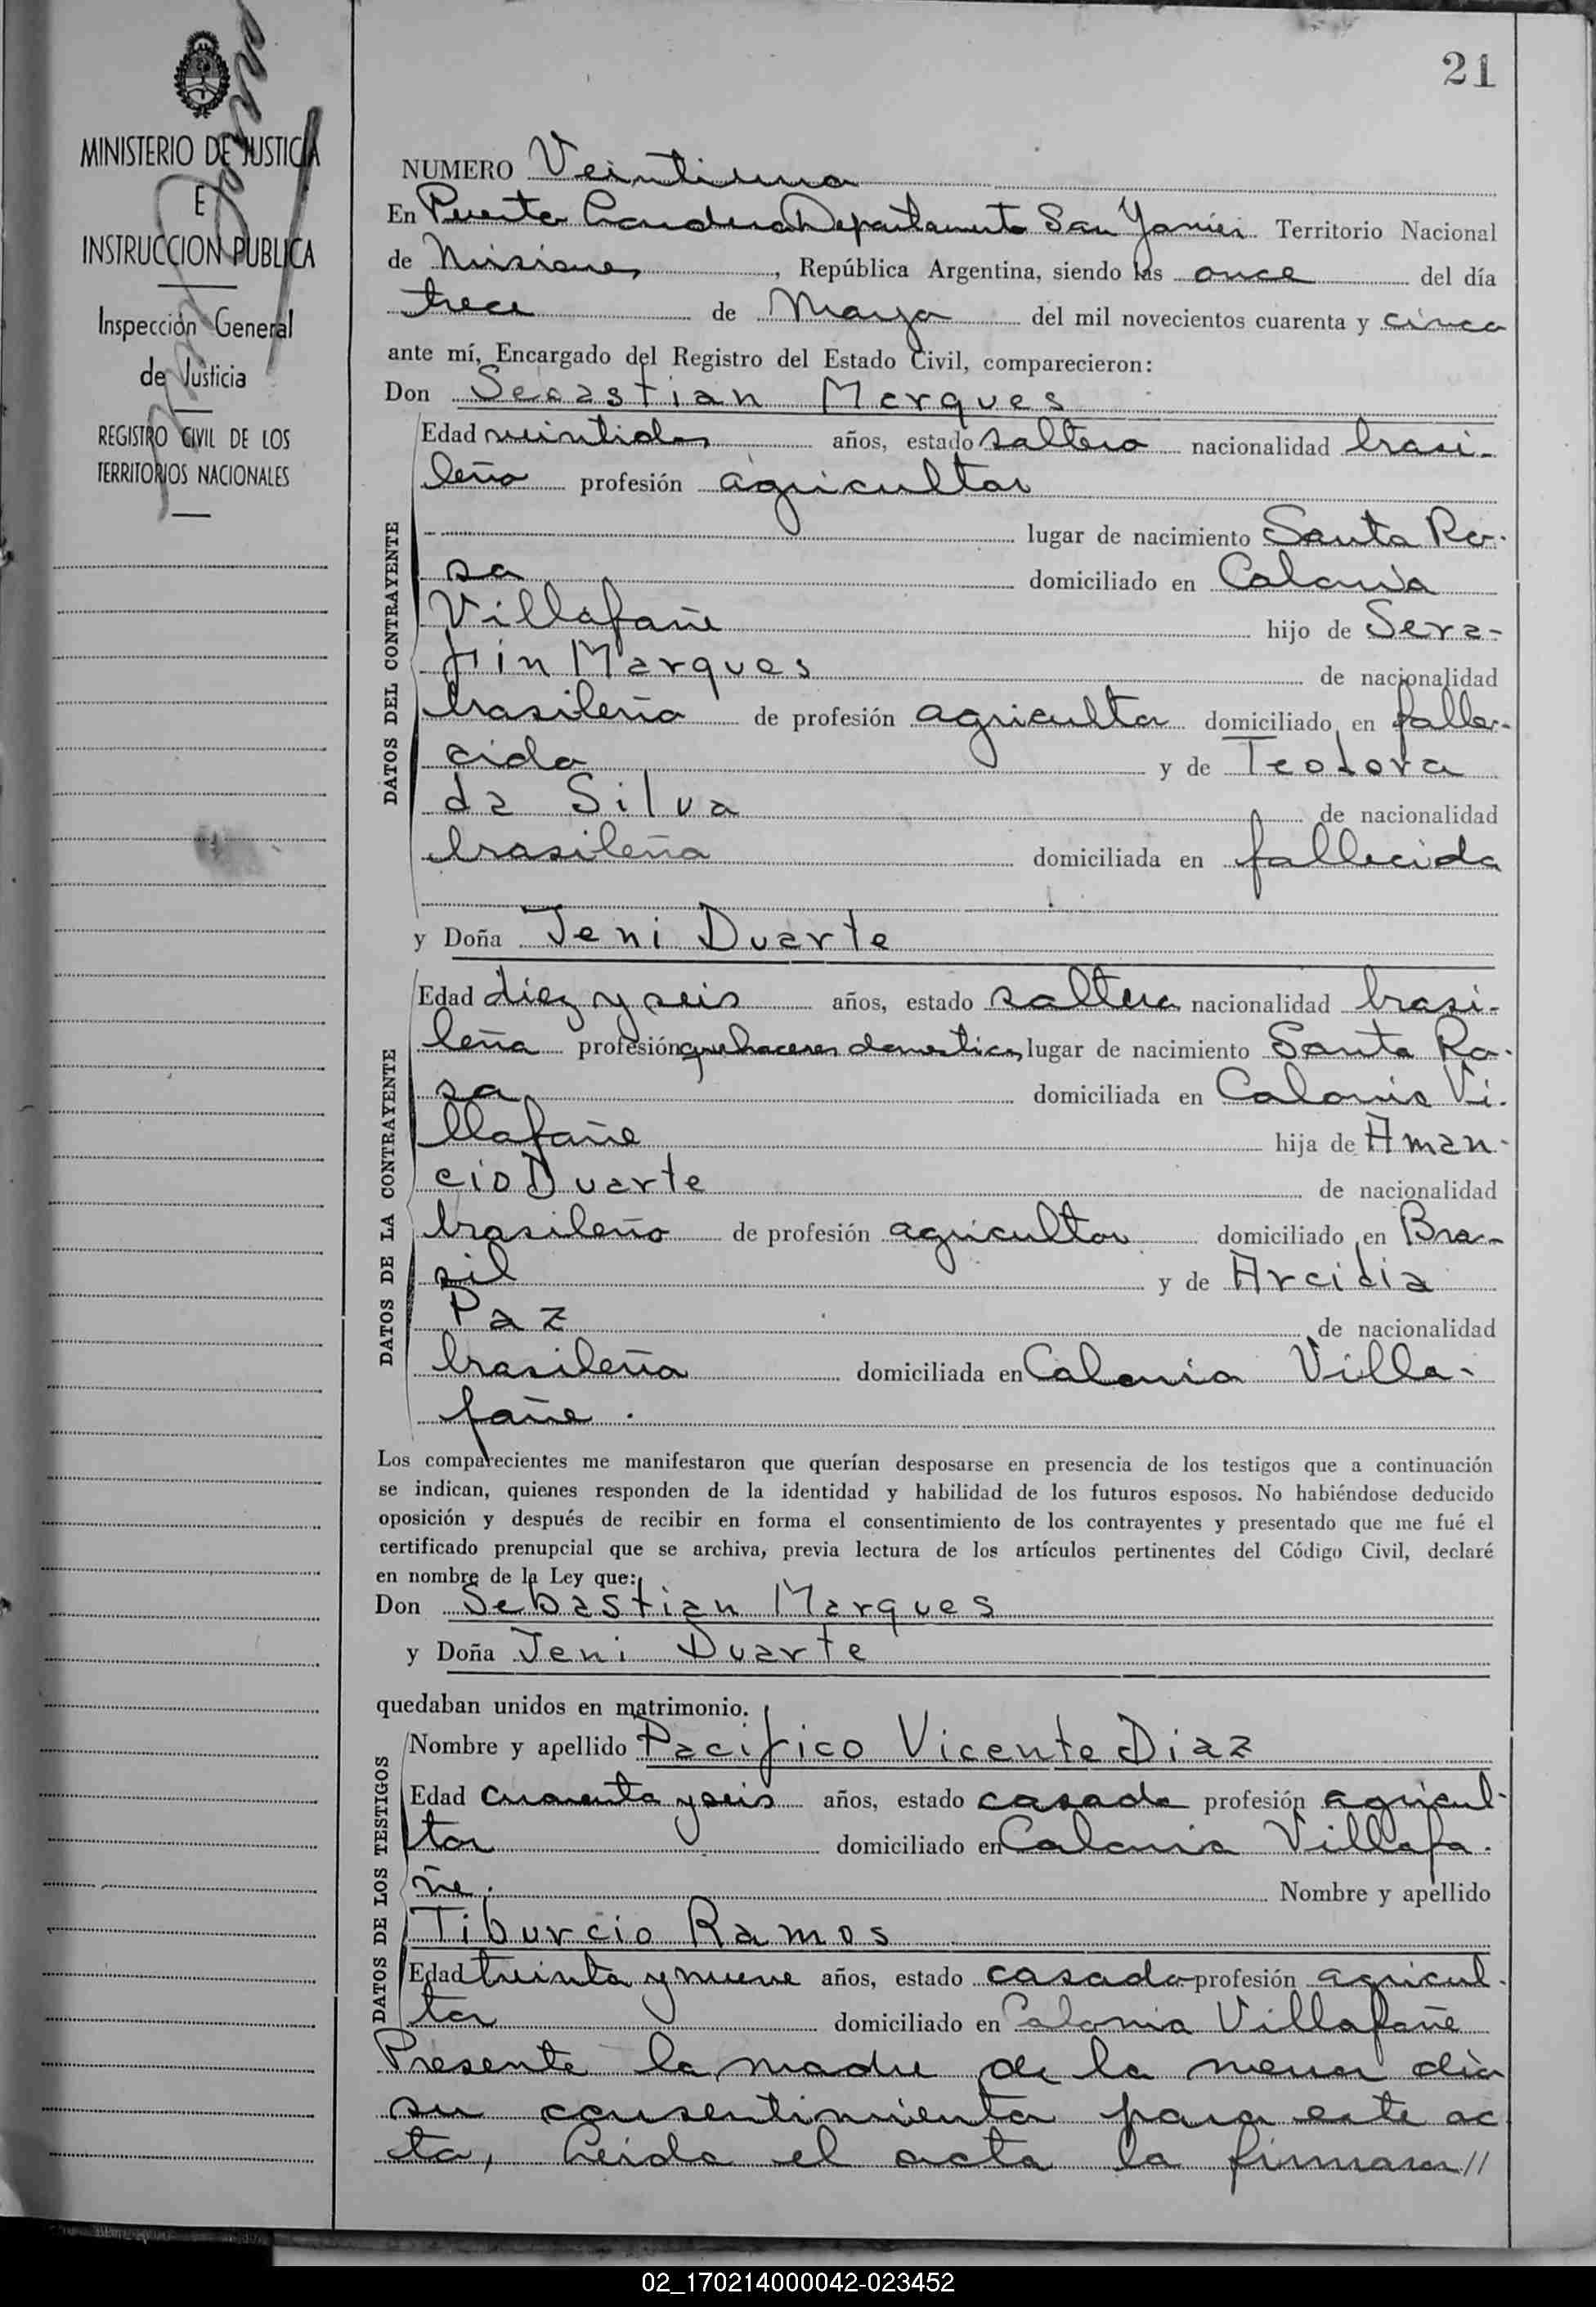 21
MINISTERIO DE JUSTICIA
E
INSTRUCCION PUBLICA
Inspección General
de Justicia
REGISTRO CIVIL DE LOS
TERRITORIOS NACIONALES
NUMERO Veintiuno
En Puerto Departamento San Javier Territorio Nacional
de Misiones, República Argentina, siendo las once del día
trece de Mayo del mil novecientos cuarenta y cinco
ante mí, Encargado del Registro del Estado Civil, comparecieron:
Don Sebastian Marques
DATOS DEL CONTRAYENTE
Edad veintidos años, estado soltero nacionalidad brasi-
leño profesión agricultor
lugar de nacimiento Santa Ro-
sa domiciliado en Colonia
Villafañe hijo de Sera-
fin Marques de nacionalidad
brasileña de profesión agricultor domiciliado en falle-
cido y de Teodora
da Silva de nacionalidad
brasileña domiciliada en fallecida
y Doña Jeni Duarte
DATOS DE LA CONTRAYENTE
Edad diez y seis años, estado soltera nacionalidad brasi-
leña profesión quehaceres domesticos lugar de nacimiento Santa Ro-
sa domiciliada en Colonia Vi-
llafañe hija de Aman-
cio Duarte de nacionalidad
brasileño de profesión agricultor domiciliado en Bra-
sil y de Arcidia
Paz de nacionalidad
brasileña domiciliada en Colonia Villa-
fañe.
Los comparecientes me manifestaron que querían desposarse en presencia de los testigos que a continuación
se indican, quienes responden de la identidad y habilidad de los futuros esposos. No habiéndose deducido
oposición y después de recibir en forma el consentimiento de los contrayentes y presentado que me fué el
certificado prenupcial que se archiva, previa lectura de los artículos pertinentes del Código Civil, declaré
en nombre de la Ley que:
Don Sebastian Marques
y Doña Jeni Duarte
quedaban unidos en matrimonio.
DATOS DE LOS TESTIGOS
Nombre y apellido Pacifico Vicente Diaz
Edad cuarenta y seis años, estado casado profesión agricul-
tor domiciliado en Colonia Villafa-
ñe. Nombre y apellido
Tiburcio Ramos
Edad treinta y nueve años, estado casado profesión agricul-
tor domiciliado en Colonia Villafañe
Presente la madre de la menor dió
su consentimiento para este ac
to, Leida el acta la firmaron//
02_170214000042-023452